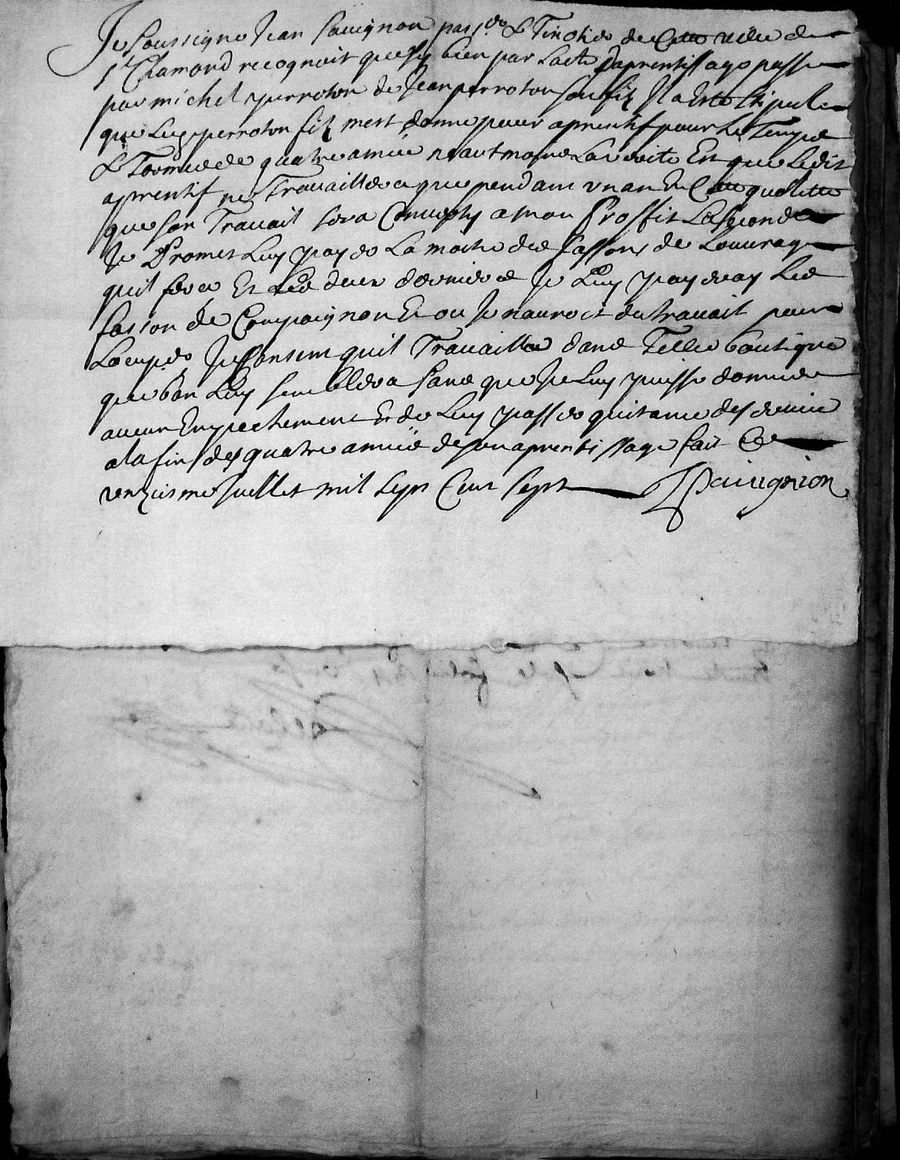 Je soussigne Jean Sauignon pass.r & Tinctier de Cette ville de
s.t Chamond recognoit que sy bien par Lacte daprentissage passe
par michel perroton de Jean perroton son filz Il a este stipule
que Led perroton filz mest donne pour aprentif pour Le Temps
& Terme de quatre annee neautmoins La verite Est que Ledit
aprentif ne Trauaillera que pendant vn an En Cette qualitte
que son Trauail sera Conuerty a mon Proffit La seconde
Je Promet Luy payer La moitie des fassons de Louurage
quil fera Et Les deux dernieres Je Luy payeray Les
fasson de Compaignon Et ou Je nauroit du trauail pour
Locuper Je Consent quil Trauaille dans Telle boutique
que bon Luy semblera sans que Je Luy puisse donner
aucun Enpechement Et de Luy passer quitance des sernie
a la fin des quatre annee de son aprentissage fait Ce
Juillet mil sept Cent sept Sauignion